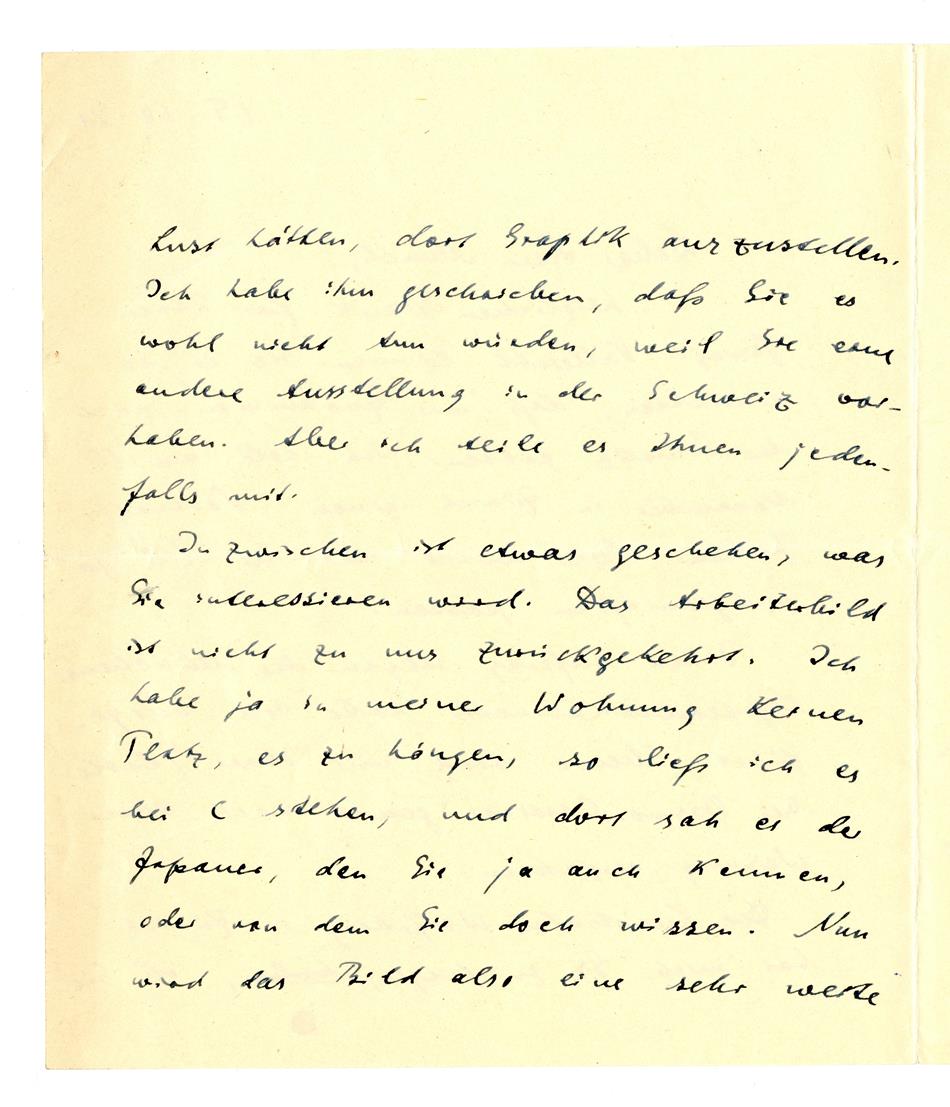 Lust hätten, dort Graphik auszustellen.
Ich habe ihm geschrieben, daß Sie es
wohl nicht tun würden, weil Sie eine
andere Ausstellung in der Schweiz vor-
haben. Aber ich teile es Ihnen jeden-
falls mit.
Inzwischen ist etwas geschehen, was
Sie interessieren wird. Das Arbeiterbild
ist nicht zu uns zurückgekehrt. Ich
habe ja in meiner Wohnung keinen
Platz, es zu hängen, so ließ ich es
bei C stehen, und dort sah es der
Japaner, den Sie ja auch kennen,
oder von dem Sie doch wissen. Nun
wird das Bild also eine sehr weite